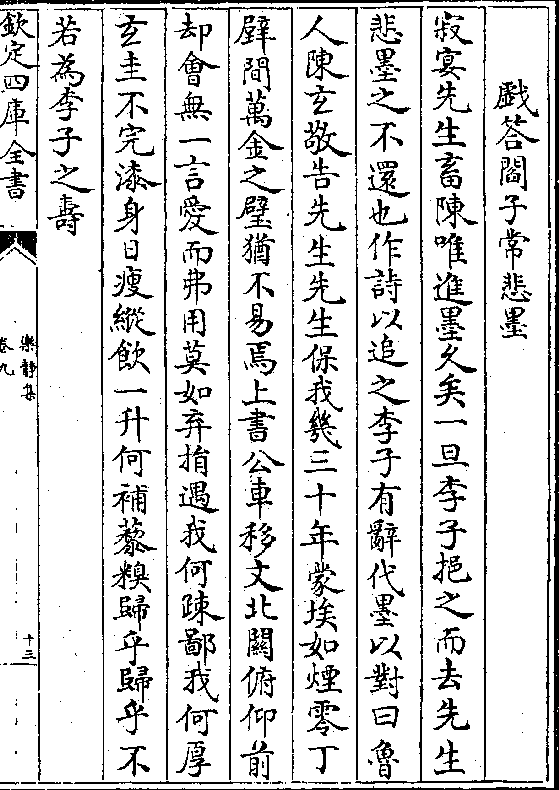 戲答閻子常悲墨
寂寞先生畜陳唯進墨久矣一旦李子挹之而去先生
悲墨之不還也作詩以追之李子有辭代墨以對曰魯
人陳玄敬告先生先生保我幾三十年蒙埃如煙零丁
壁間萬金之璧猶不易焉上書公車移文北闕俯仰前
却會無一言愛而弗用莫如弃捐遇我何疎鄙我何厚
玄圭不完漆身日瘦縱飲一升何補藜糗歸乎歸乎不
若為李子之壽
欽定四庫全書
樂靜集
卷九
十三